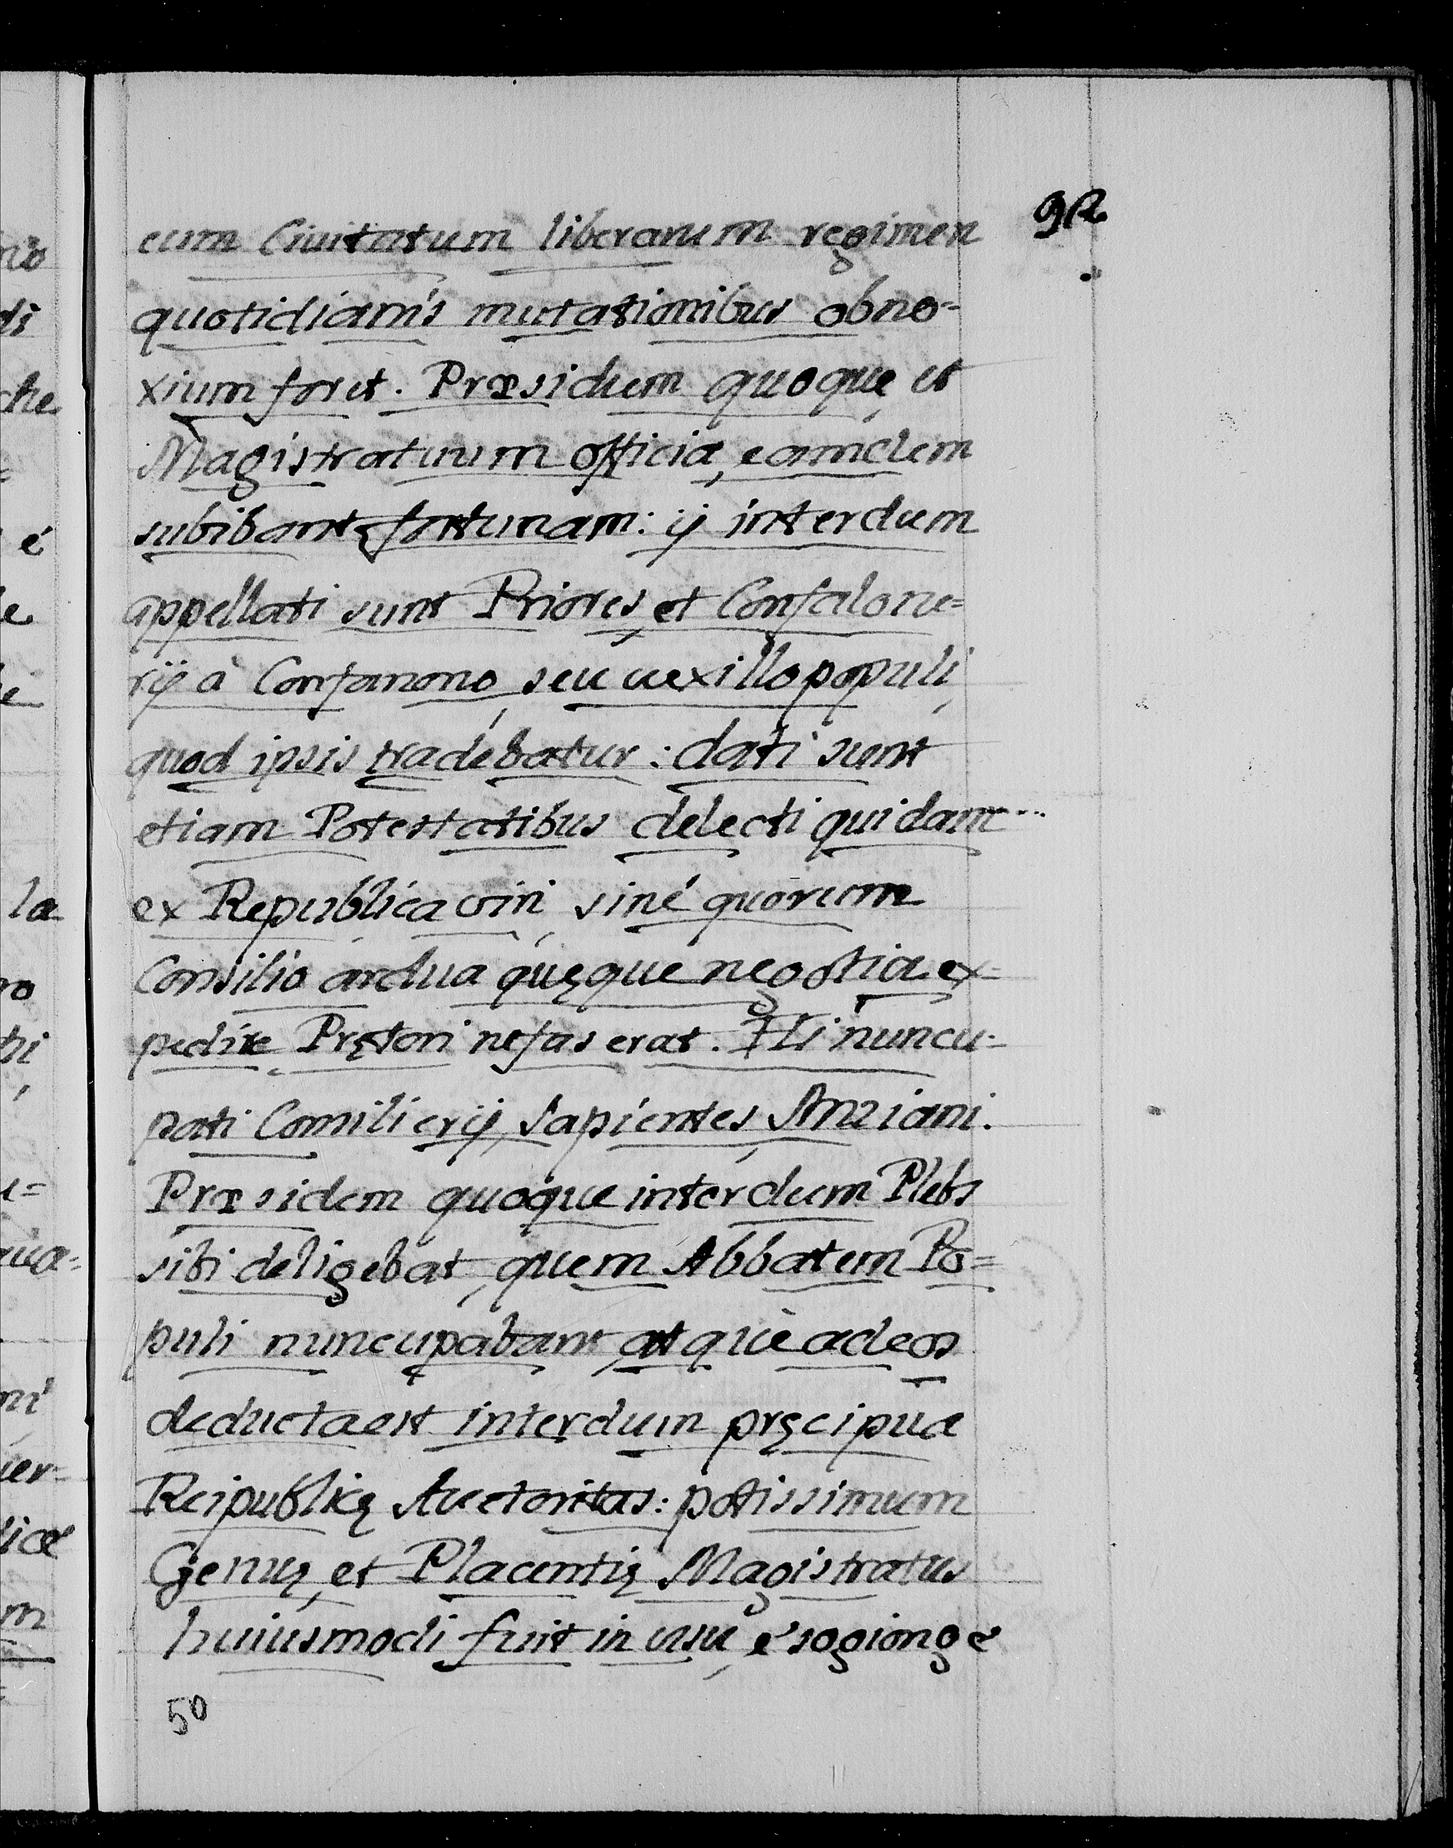 92
eum Ciuitatum liberarum regimen
quotidianis mutationibus obno=
xium foret. Præsidum quoque et
Magistratuum officia, eamdem
subibant fortunam: ij interdum
appellati sunt Priores, et Confalone=
rij à Confanono, seu uexillo populi,
quod ipsis tradebatur: dati sunt
etiam Potestatibus delecti quidam
ex Republica uiri, sine quorum
Consilio ardua quęque negotia ex=
pedire Prętori nefas erat. Hi nuncu=
pati Consilierij, Sapientes, Anziani.
Præsidem quoque interdum Plebs
sibi deligebat, quem Abbatem Po=
puli nuncupabant, atquè adeos
deducta est interdum pręcipua
Reipublicę Auctoritas: potissimum
Genuę, et Placentię Magistratus
huiusmodi fuit in usu, e sogionge
50